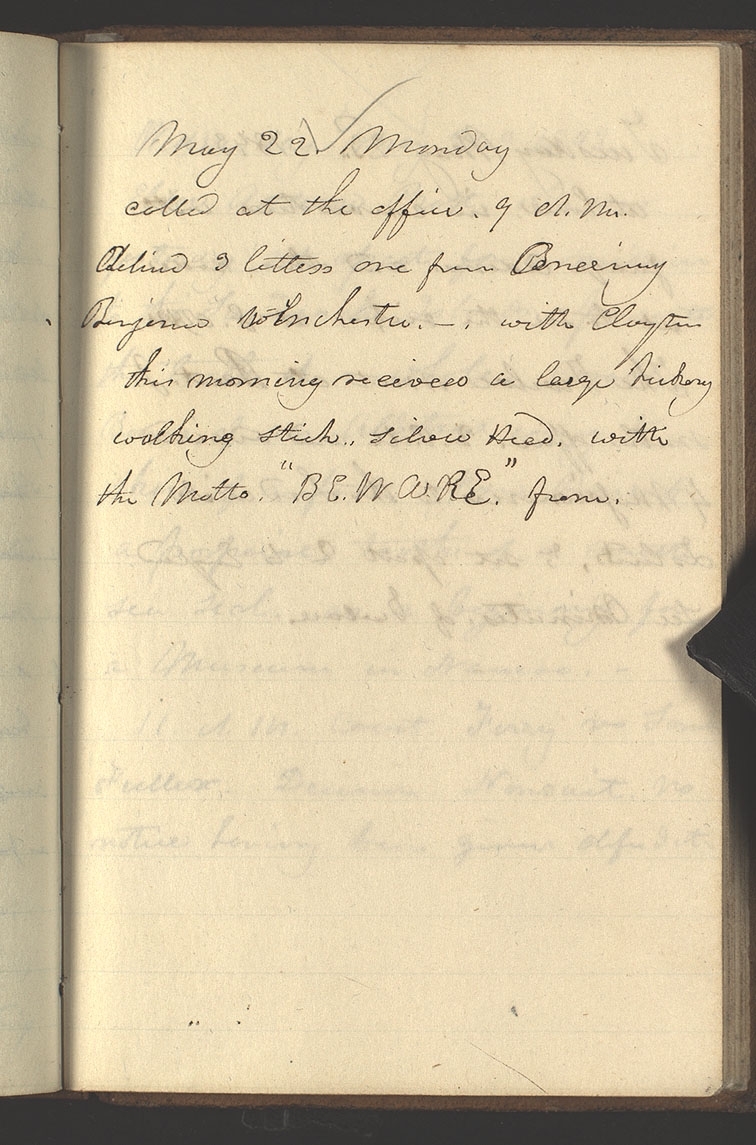 May 22. Monday
called at the office. 9 A.M.
3 letters one from
Benjamin Winchester. —. with Clayton
this morning received a large hickory
walking stick,. silver Head. with
the Motto. "BEWARE." from.